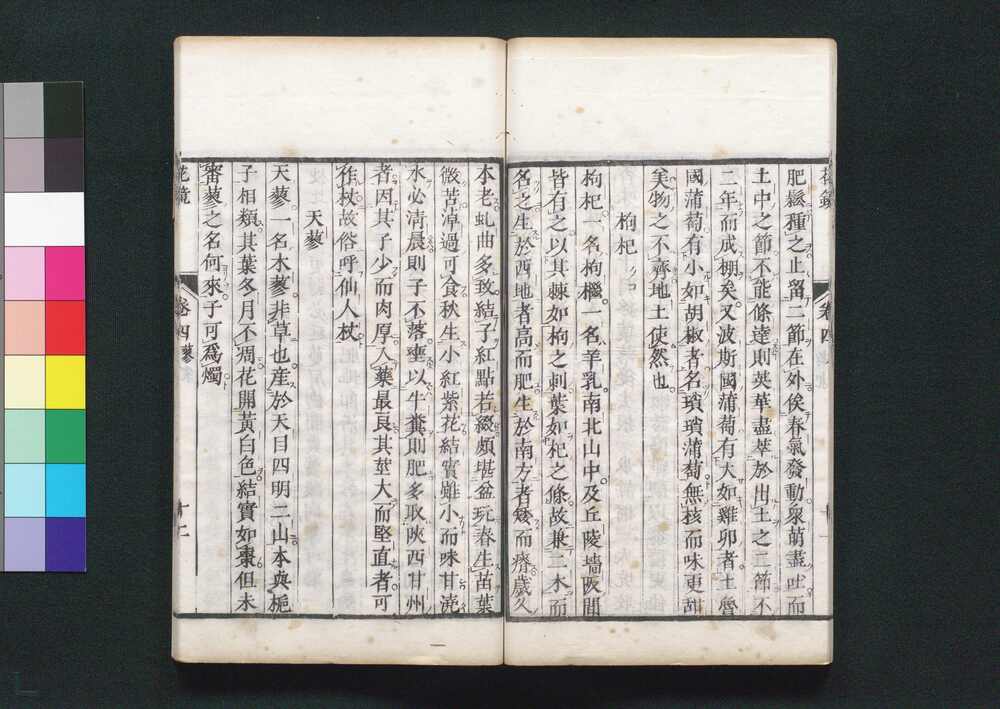 肥鬆種之止留二節在外俟春氣發動衆萌盡吐而
土中之節不能條達則英華盡萃於出土之二節不
二年而成棚矣又波斯國蒲萄有大如雞卵者土魯
國蒲萄有小如胡椒者名瑣瑣蒲萄無核而味更甜
美物之不齊地土使然也
枸杞
枸杞一名枸檵一名羊乳南北山中及丘陵墻阪間
皆有之以其棘如枸之刺葉如杞之條故兼二木而
名之生於西地者高而肥生於南方者矮而瘠歲久
本老虬曲多致結子紅點若綴頗堪盆玩春生苗葉
微苦淖過可食秋生小紅紫花結實雖小而味甘澆
水必清晨則子不落壅以牛糞則肥多取陝西甘州
者因其子少而肉厚入藥最良其莖大而堅直者可
作杖故俗呼仙人杖
天蓼
天蓼一名木蓼非草也産於天目四明二山本與梔
子相類其葉冬月不凋花開黃白色結實如棗但未
審蓼之名何來子可爲燭
花鏡
卷四蓼
十二
花鏡
卷四